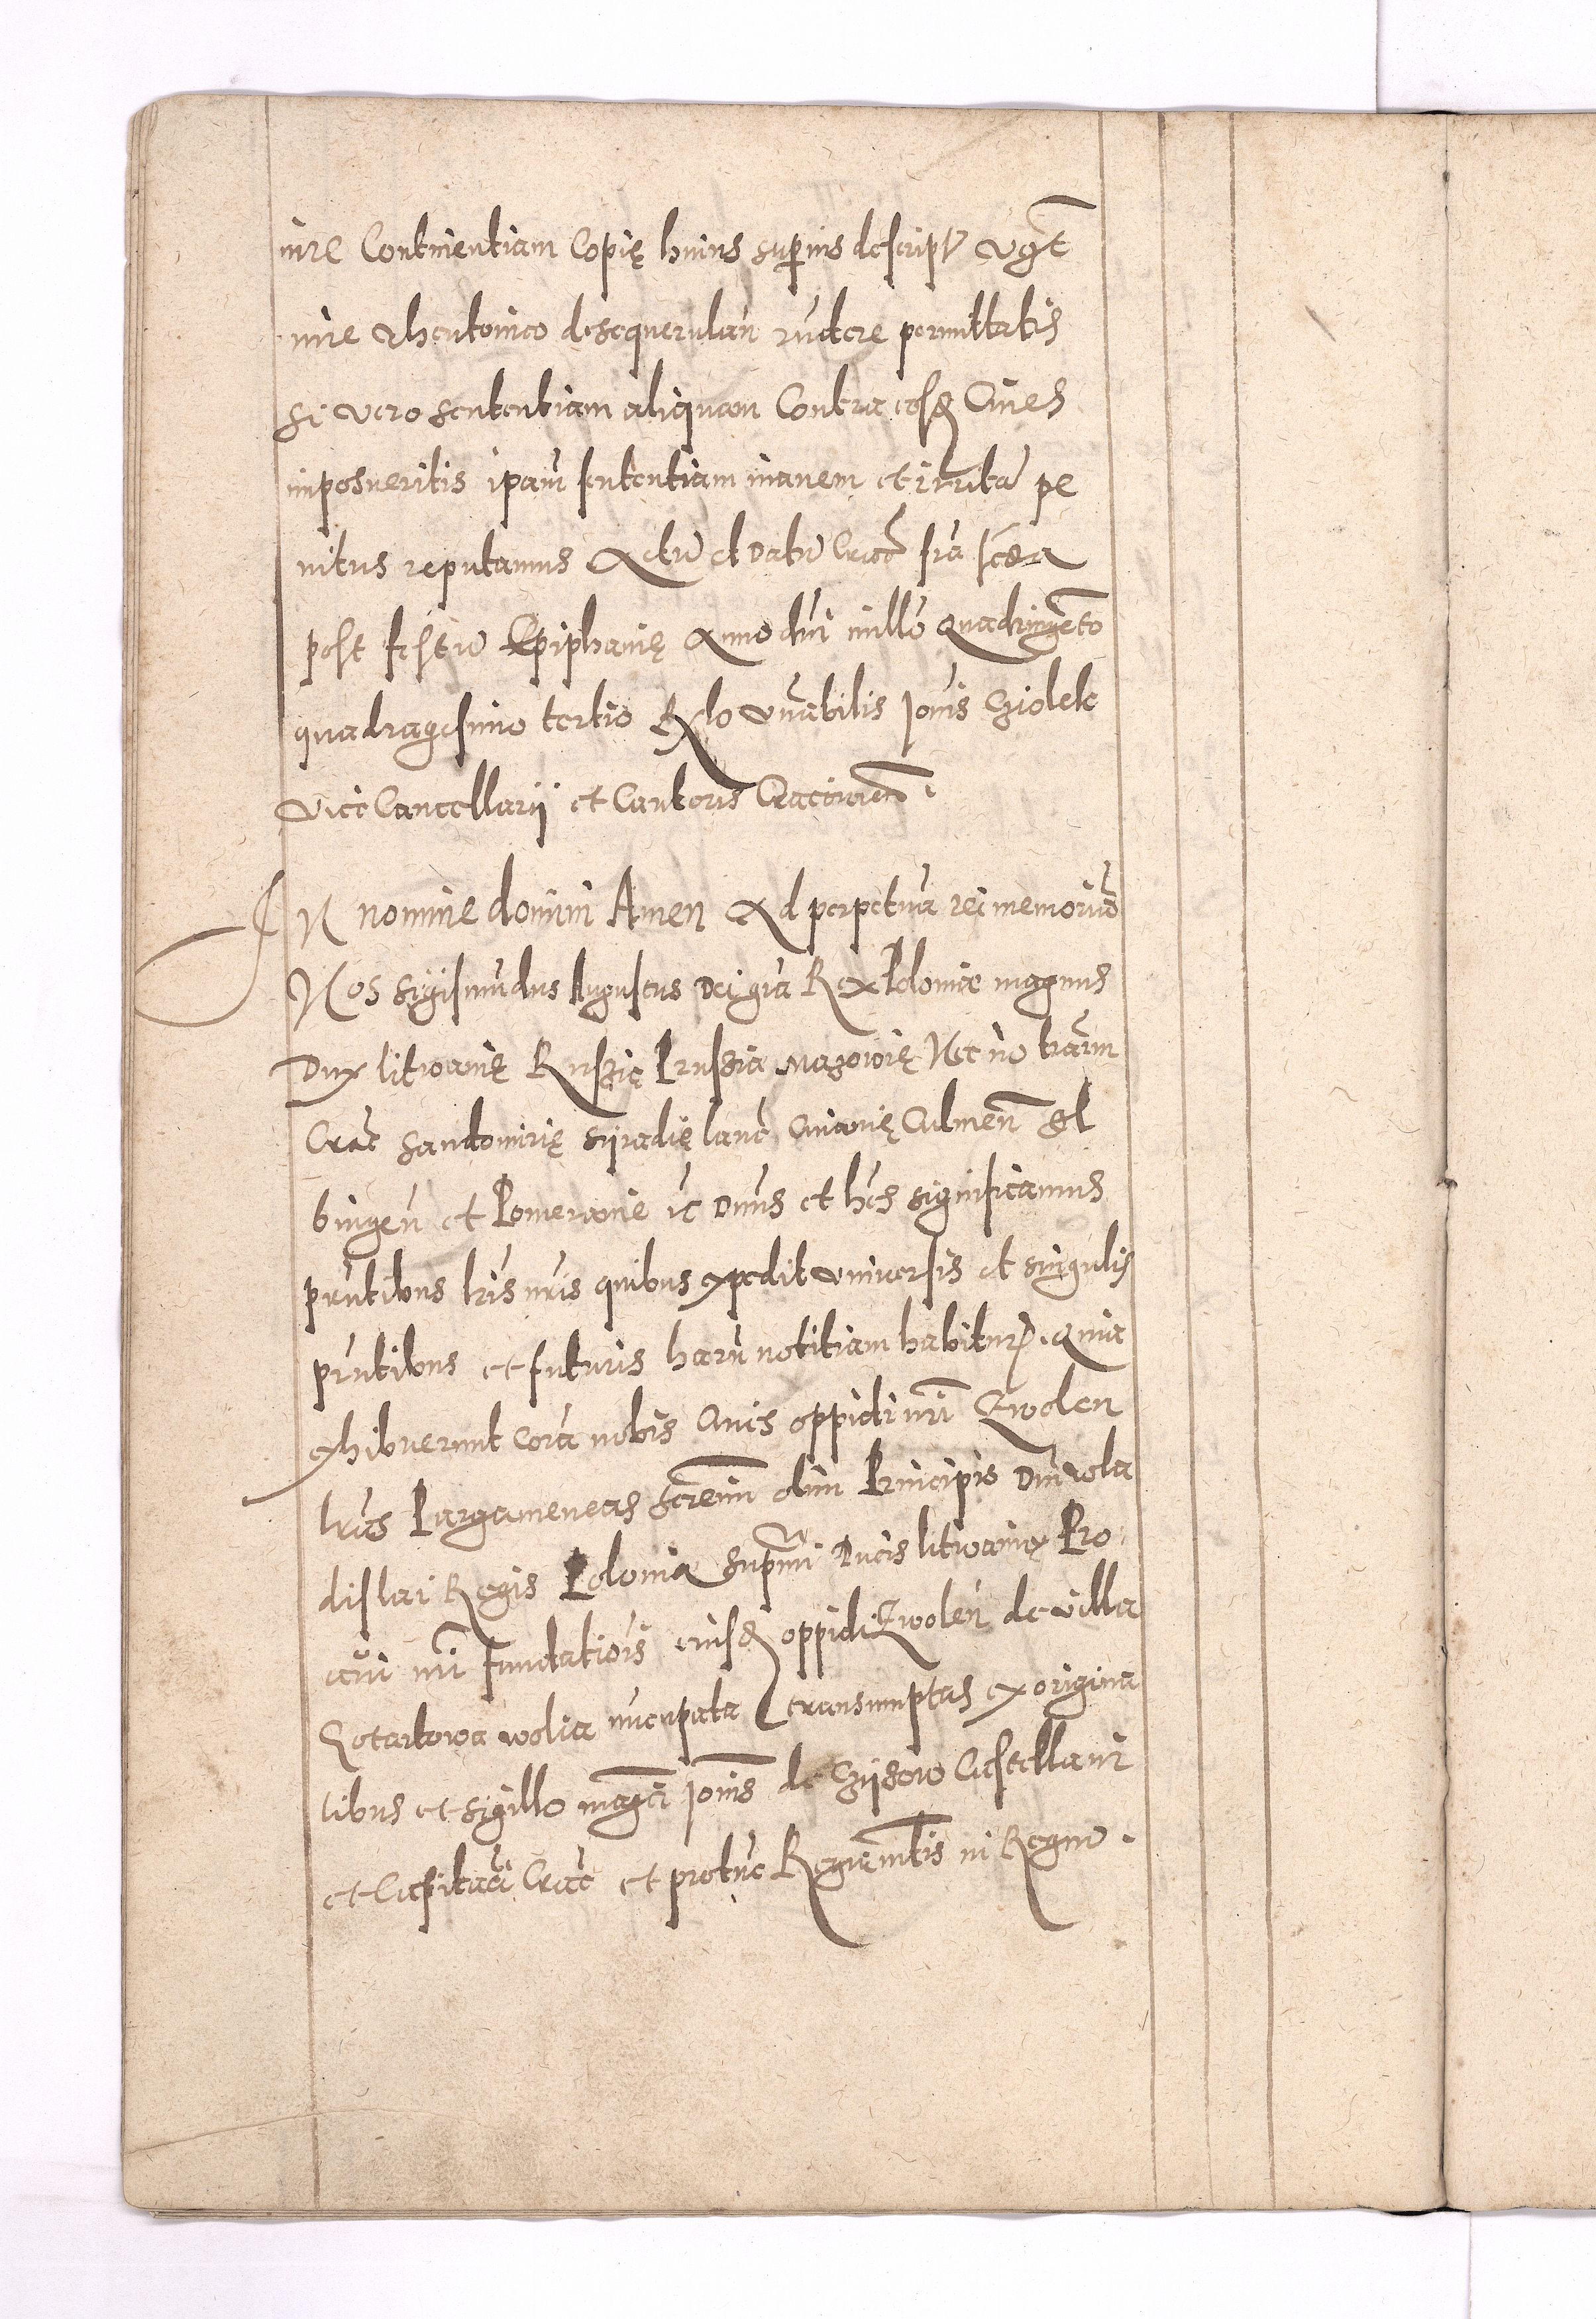 iure Continentiam Copię huius superius descript vg̃t
iure theutonico desequerulan rudere permittatis
si vero sententiam aliquam Contra eosꝗ Ciues
imposueritis ipam̃ sententiam inanem et irritã pe
nitus reputamus Actũ et Datũ Crac̃ fr̃a sc̃da
post festũ Epiphanię Anno dñi millõ quadringẽto
quadragesimo tertio Rẽlo vñabilis Joñis Cziolek
Vice Cancellarij et Cantoris Cracouieñ.
IN nomine domini Amen Ad perpetuã rei memoriã
Nos Sigismũdus Augustus Dei grã Rex Poloniæ magnus
Dux litwanię Russię Prussia Mazowię Nec nõ trãrum
Crac̃ Sandomirię Syradię lanc̃ Cuiavię Culmeñ El
bingeñ et Pomeranie ic Dnũs et hẽs significamus
pr̃ntibus lr̃is nr̃is quibus expedit vniversis et singulis
pr̃ntibus et futuris harũ notitiam habitur. Quia
exhibuerunt corã nobis Ciues oppidi nr̃i Zwolen
lr̃as Pargameneas Sereniss̃ olim Principis Dñi Wla
dislai Regis Polonia Supremi Ducis litwaniæ Pro
aui nr̃i fundatiois̃ eiusꝗ oppidi Zwoleñ de villa
Gotartowa wolia nũcupata transumptas ex origina
libus et sigillo mag̃ci Joñis de Czÿsow Castellani
et Capitãi Crac̃ et protũc Regiminitis in Regno.